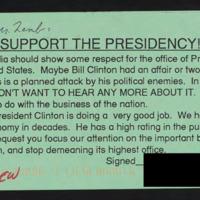 SUPPORT THE PRESIDENCY!
lia should show some respect for the office of Pr
d States. Maybe Bill Clinton had an affair or two
s is a planned attack by his political enemies. In
ON'T WANT TO HEAR ANY MORE ABOUT IT.
o do with the business of the nation.
resident Clinton is doing a very good job. We h
nomy in decades. He has a high rating in the pu
request you focus our attention on the important b
n, and stop demeaning its highest office.
Signed